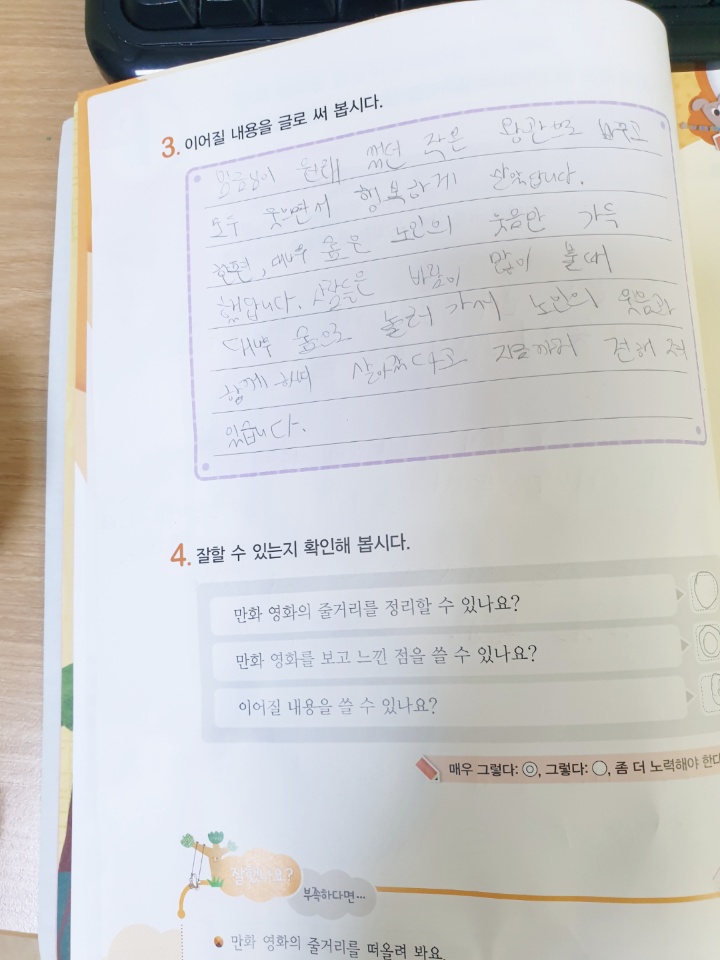 3. 이어질 내용을 글로 써 봅시다.
임금님이 원래 썼던 작은 왕관으로 바꾸고
모두 웃으면서 행복하게 살았답니다.
한편, 대나무 숲은 노인의 웃음만 가득
했답니다. 사람들은 바람이 많이 불 때
대나무 숲으로 놀러 가서 노인의 웃음과
함께 하며 살아갔다고 지금까지 전해 져
있습니다.
4. 잘할 수 있는지 확인해 봅시다.
만화 영화의 줄거리를 정리할 수 있나요?
만화 영화를 보고 느낀 점을 쓸 수 있나요?
이어질 내용을 쓸 수 있나요?
매우 그렇다: ◎, 그렇다: ○, 좀 더 노력해야 한다
잘했나요?
부족하다면…
만화 영화의 줄거리를 떠올려 봐요.